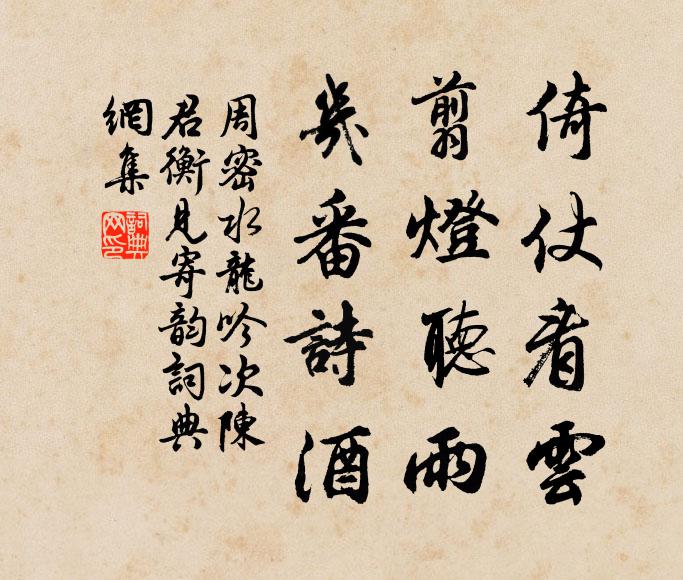 倚仗看雲
翦燈聽雨
幾番詩酒
周密水龍吟次陳
君衡見寄韵詞典
網集
詞典
网印